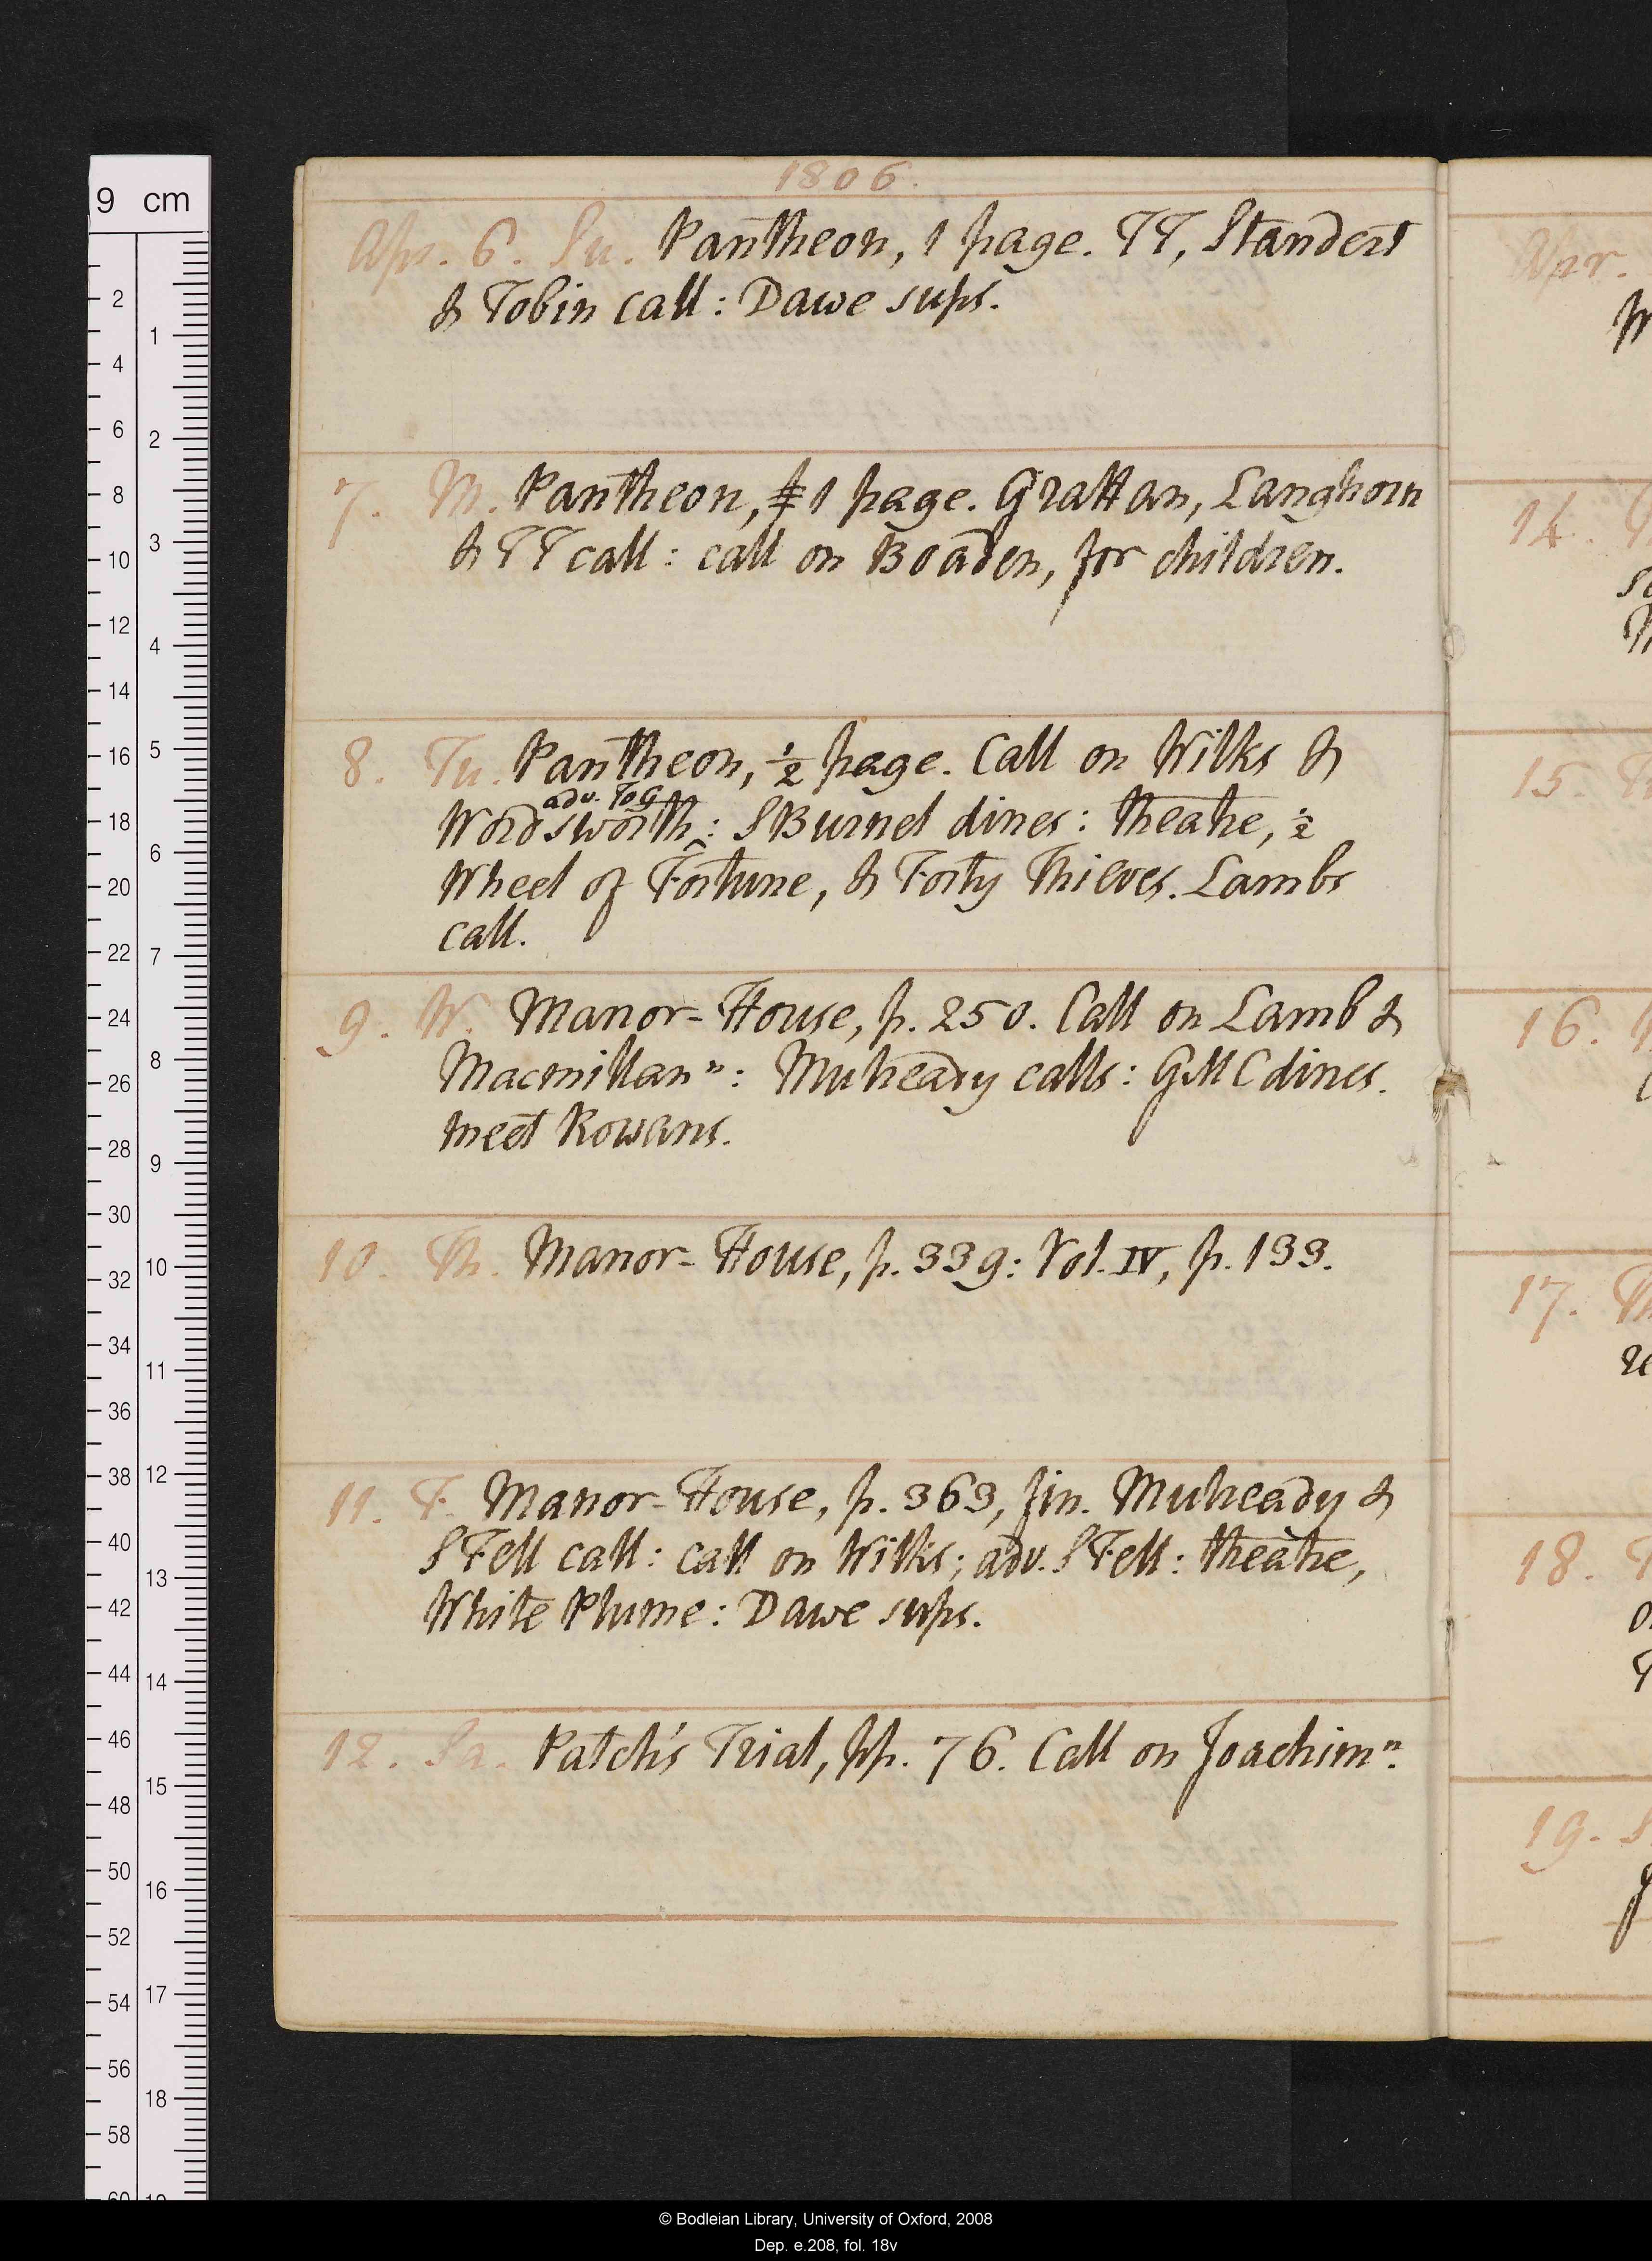 1806.
Apr. 6. Su. Pantheon, 1 page. TT, Standert
& Tobin call: Dawe sups.
7. M. Pantheon, 1 page. Grattan, Langhorn
& TT call: call on Boaden, for children.
8. Tu. Pantheon, ½ page. Call on Wilks &
adv. ToG
Wordsworth^: SBurnel dines: theatre, ½
Wheel of Fortune, & Forty Thieves. Lambs
call.
9. W. Manor-House, p. 250. Call on Lamb &
Macmillan ⁿ: Muheady calls: GMC dines.
meet Rowans.
10. Th. Manor-House, p. 339: Vol. IV, p. 133.
11. F. Manor-House, p. 363, fin. Muheady &
SFell call: call on Wilks; adv. SFell: theatre,
White Plume: Dawe sups.
12. Sa. Patch's Trial, pp. 76. Call on Joachim ⁿ.
Apr.
14.
15.
16.
17. Th
18.
19. S
9 cm
2
4
6
8
10
12
14
16
18
20
22
24
26
28
30
32
34
36
38
40
42
44
46
48
50
52
54
56
58
1
2
3
4
5
6
7
8
9
10
11
12
13
14
15
16
17
18
© Bodleian Library, University of Oxford, 2008
Dep. e.208, fol. 18v